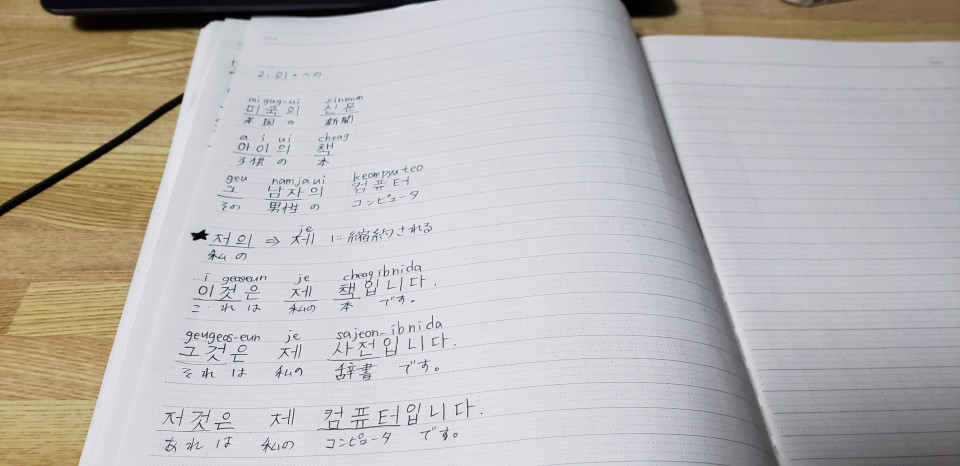 2. 의 = ~の
mi gug-ui sinmun
미국의 신문
米国 の 新聞
a i ui cheag
아이의 책
子供 の 本
geu namjaui keompyuteo
그 남자의 컴퓨터
その 男性 の コンピュータ
je
★ 저의 ⇒ 제 に縮約される
私の
i geoseun je cheagibnida
이것은 제 책입니다.
これは 私の 本 です。
geugeos-eun je sajeon-ibnida
그것은 제 사전입니다.
それは 私の 辞書 です。
저것은 제 컴퓨터입니다.
あれは 私の コンピュータ です。